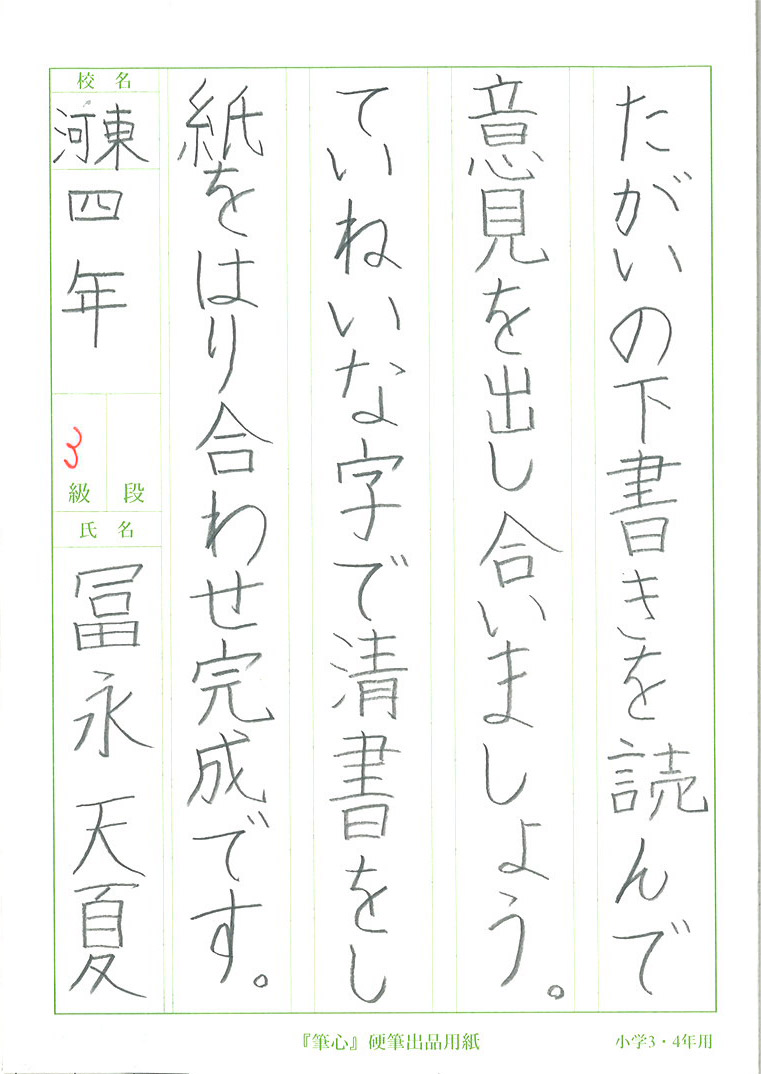 たがいの下書きを読んで
意見を出し合いましょう。
ていねいな字で清書をし
紙をはり合わせ完成です。
校名
河東
四年
3
級 段
氏名
冨永 天夏
『筆心』硬筆出品用紙
小学3・4年用